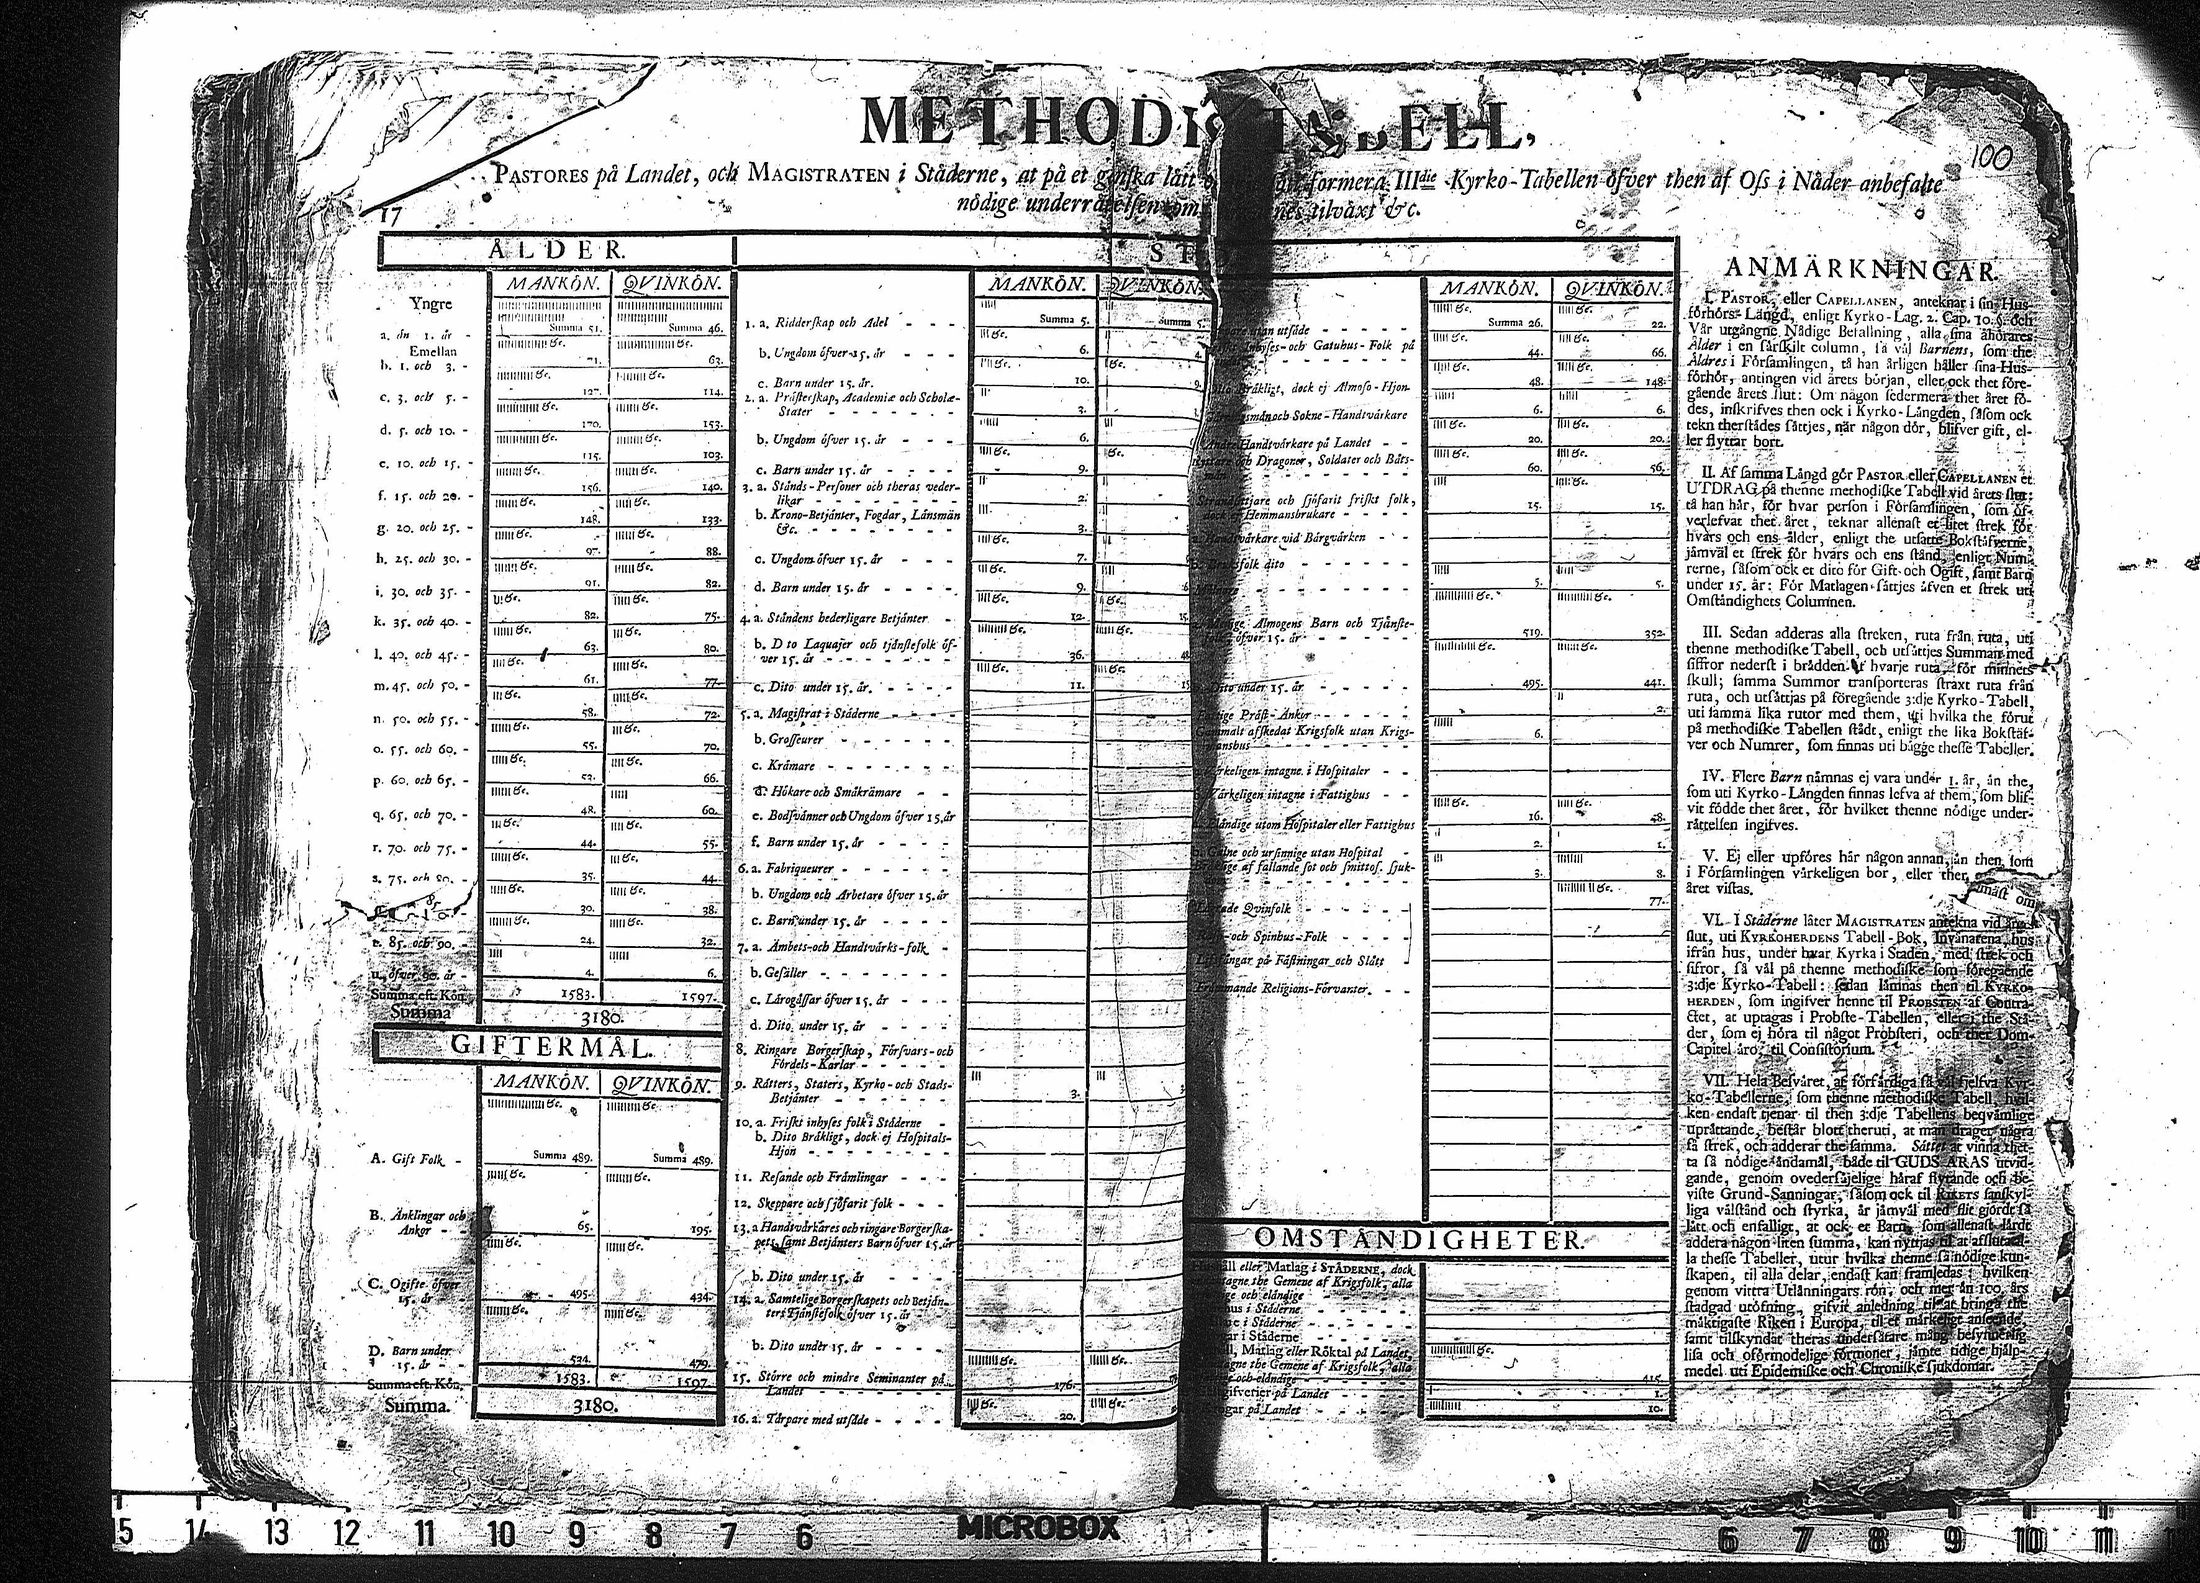 METHODI
100
PASTORES på Landet, och MAGISTRATEN i Städerne, at på et ganska lätt formera IIIdie Kyrko-Tabellen öfver then af Oss i Nåder anbefalte
nödige tilväxt &c.
17
ÅLDER.
MANKÖN. QVINKÖN.
Yngre
a. än 1. år - Summa 51. Summa 46.
Emellan
b. 1. och 3. - 71. 63.
c. 3. och 5. - 127. 114.
d. 5. och 10. - 170. 153.
e. 10. och 15. - 115. 103.
f. 15. och 20. - 156. 140.
g. 20. och 25. - 148. 133.
h. 25. och 30. - 97. 88.
i. 30. och 35. - 91. 82.
k. 35. och 40. - 82. 75.
l. 40. och 45. - 63. 80.
m. 45. och 50. - 61. 77.
n. 50. och 55. - 58. 72.
o. 55. och 60. - 55. 70.
p. 60. och 65. - 52. 66.
q. 65. och 70. - 48. 60.
r. 70. och 75. - 44. 55.
s. 75. och 80. - 35. 44.
30. 38.
t. 85. och 90. - 24. 32.
u. öfver 90. år - 4. 6.
Summa eft. Kön. 1583. 1597.
Summa 3180.
GIFTERMÅL.
MANKÖN. QVINKÖN.
A. Gift Folk - Summa 489. Summa 489.
B. Änklingar och
Ankor - - 65. 195.
C. Ogifte öfver
15. år 495. 434.
D. Barn under
15. år - - 534. 479.
Summa eft. Kön. 1583. 1597.
Summa. 3180.
MANKÖN. QVINKÖN.
1. a. Ridderskap och Adel - - - Summa 5. Summa 5.
b. Ungdom öfver 15. år - - - 6. 4.
c. Barn under 15. år. 10. 9.
2. a. Prästerskap, Academiæ och Scholæ-
Stater - - - - - - - 3.
b. Ungdom öfver 15. år - - - 6.
c. Barn under 15. år - - - - 9.
3. a. Stånds-Personer och theras veder-
likar - - - - - - - - 2.
b. Krono-Betjänter, Fogdar, Länsmän
&c. - - - - - - - - 3.
c. Ungdom öfver 15. år - - - 7.
d. Barn under 15. år - - - - 9.
4. a. Ståndens hederligare Betjänter - 12. 15.
b. Dito Laquajer och tjänstefolk öf-
ver 15. år - - - - - - 36.
c. Dito under 15. år. - - - - 11.
5. a. Magistrat i Städerne - - - -
b. Grosseurer - - - - - -
c. Krämare - - - - - -
d. Hökare och Småkrämare - -
e. Bodsvänner och Ungdom öfver 15. år
f. Barn under 15. år - - - -
6. a. Fabriqueurer - - - - - -
b. Ungdom och Arbetare öfver 15. år
c. Barn under 15. år - - - -
7. a. Ämbets- och Handtvärks-folk -
b. Gesäller - - - - - - -
c. Lärogåssar öfver 15. år - - -
d. Dito under 15. år - - - -
8. Ringare Borgerskap, Försvars- och
Fördels-Karlar - - - - -
9. Rätters, Staters, Kyrko- och Stads-
Betjänter - - - - - - 3.
10. a. Friskt inhyses folk i Städerne -
b. Dito Bräkligt, dock ej Hospitals-
Hjon - - - - - - - -
11. Resande och Främlingar - - -
12. Skeppare och sjöfarit folk - - -
13. a. Handtvärkares och ringare Borgerska-
pets, samt Betjänters Barn öfver 15. år
b. Dito under 15. år - - - -
14. a. Samtelige Borgerskapets och Betjän-
ters Tjänstefolk öfver 15. år - -
b. Dito under 15. år - - - -
15. Större och mindre Seminanter på
Landet - - - - - - - 176.
16. a. Tårpare med utsäde - - - - 20.
MANKÖN. QVINKÖN.
utan utsäde - - - - - Summa 26. 22.
Inhyses- och Gatuhus-Folk på
44. 66.
Bräkligt, dock ej Almoso-Hjon 48. 148.
och Sokne-Handtvärkare 6. 6.
Andre Handtvärkare på Landet - - 20. 20.
och Dragoner, Soldater och Båts-
60. 56.
och sjöfarit friskt folk,
dock ej Hemmansbrukare - - - - 15. 15.
Handtvärkare vid Bärgvärken - -
Bruksfolk dito - - - - - 5. 5.
Almogens Barn och Tjänste-
folk öfver 15. år - - - - - 519. 352.
Dito under 15. år - - - - - 495. 441.
Fattige Präst-Ankor - - - - - 2.
Gammalt afskedat Krigsfolk utan Krigs-
manshus - - - - - - - 6.
Värkeligen intagne i Hospitaler - -
Värkeligen intagne i Fattighus - -
Eländige utom Hospitaler eller Fattighus 16. 48.
Galne och ursinnige utan Hospital - 2. 1.
af fallande sot och smittos. sjuk-
3. 8.
Qvinfolk - - - - - - 77.
och Spinhus-Folk - - - -
på Fästningar och Slått
Religions-Förvanter. - -
OMSTÄNDIGHETER.
eller Matlag i STÄDERNE, dock
the Gemene af Krigsfolk, alla
och eländige -
i Städerne - - - - -
i Städerne - - - - -
i Städerne - - - - -
Matlag eller Röktal på Landet,
the Gemene af Krigsfolk, alla
och eländige - - - - - 415.
på Landet - - - - 1.
på Landet - - - - 10.
ANMÄRKNINGAR.
I. PASTOR, eller CAPELLANEN, anteknar i sin Hus-
förhörs-Längd, enligt Kyrko-Lag. 2. Cap. 10. §. och
Vår utgångne Nådige Befallning, alla sina åhörares
Ålder i en särskilt column, så väl Barnens, som the
Äldres i Församlingen, tå han årligen håller sina Hus-
förhör, antingen vid årets början, eller ock thet före-
gående årets slut: Om någon sedermera thet året fö-
des, inskrifves then ock i Kyrko-Längden, såsom ock
tekn therstädes sättjes, när någon dör, blifver gift, el-
ler flyttar bort.
II. Af samma Längd gör PASTOR eller CAPELLANEN et
UTDRAG på thenne methodiske Tabell vid årets slut:
tå han här, för hvar person i Församlingen, som öf-
verlefvat thet året, teknar allenast et litet strek för
hvars och ens ålder, enligt the utsatte Bokstäfverne,
jämväl et strek för hvars och ens stånd, enligt Num-
rerne, såsom ock et dito för Gift och Ogift, samt Barn
under 15. år: För Matlagen sättjes äfven et strek uti
Omständighets Columnen.
III. Sedan adderas alla streken, ruta från ruta, uti
thenne methodiske Tabell, och utsättjes Summan med
siffror nederst i brädden af hvarje ruta, för minnets
skull; samma Summor transporteras straxt ruta från
ruta, och utsättjas på föregående 3:dje Kyrko-Tabell,
uti samma lika rutor med them, uti hvilka the förut
på methodiske Tabellen städt, enligt the lika Bokstäf-
ver och Numrer, som finnas uti bägge thesse Tabeller.
IV. Flere Barn nämnas ej vara under 1. år, än the,
som uti Kyrko-Längden finnas lefva af them, som blif-
vit födde thet året, för hvilket thenne nödige under-
rättelsen ingifves.
V. Ej eller upföres här någon annan, än then, som
i Församlingen värkeligen bor, eller ther mäst om
året vistas.
VI. I Städerne låter MAGISTRATEN antekna vid årets
slut, uti KYRKOHERDENS Tabell-Bok, Invånarena, hus
ifrån hus, under hvar Kyrka i Staden, med strek och
sifror, så väl på thenne methodiske som föregående
3:dje Kyrko-Tabell: sedan lämnas then til KYRKO-
HERDEN, som ingifver henne til PROBSTEN af Contra-
ctet, at uptagas i Probste-Tabellen, eller i the Stä-
der, som ej höra til något Probsteri, och ther Dom-
Capitel äro, til Consistorium.
VII. Hela Besväret, at förfärdiga så väl sjelfva Kyr-
ko-Tabellerne, som thenne methodiske Tabell, hvil-
ken endast tjenar til then 3:dje Tabellens beqvämlige
uprättande, består blott theruti, at man drager några
få strek, och adderar the samma. Sättet at vinna thet-
ta så nödige ändamål, både til GUDS ÄRAS utvid-
gande, genom ovedersäjelige häraf flytande och be-
viste Grund-Sanningar, såsom ock til RIKETS sanskyl-
liga välstånd och styrka, är jämväl med flit gjordt så
lätt och enfalligt, at ock et Barn, som allenast lärdt
addera någon liten summa, kan nyttjas til at afsluta al-
la thesse Tabeller, utur hvilka thenne så nödige kun-
skapen, til alla delar, endast kan framledas; hvilken
genom vittra Utlänningars rön, och mer än 100. års
stadgad utöfning, gifvit anledning til at bringa the
mäktigaste Riken i Europa, til et märkeligt anseende,
samt tilskyndat theras undersåtare mång besynnerlig
lisa och oförmodelige förmoner, jämte tidige hjälp-
medel uti Epidemiske och Chroniske sjukdomar.
15 14 13 12 11 10 9 8 7 6 MICROBOX 6 7 8 9 10 11